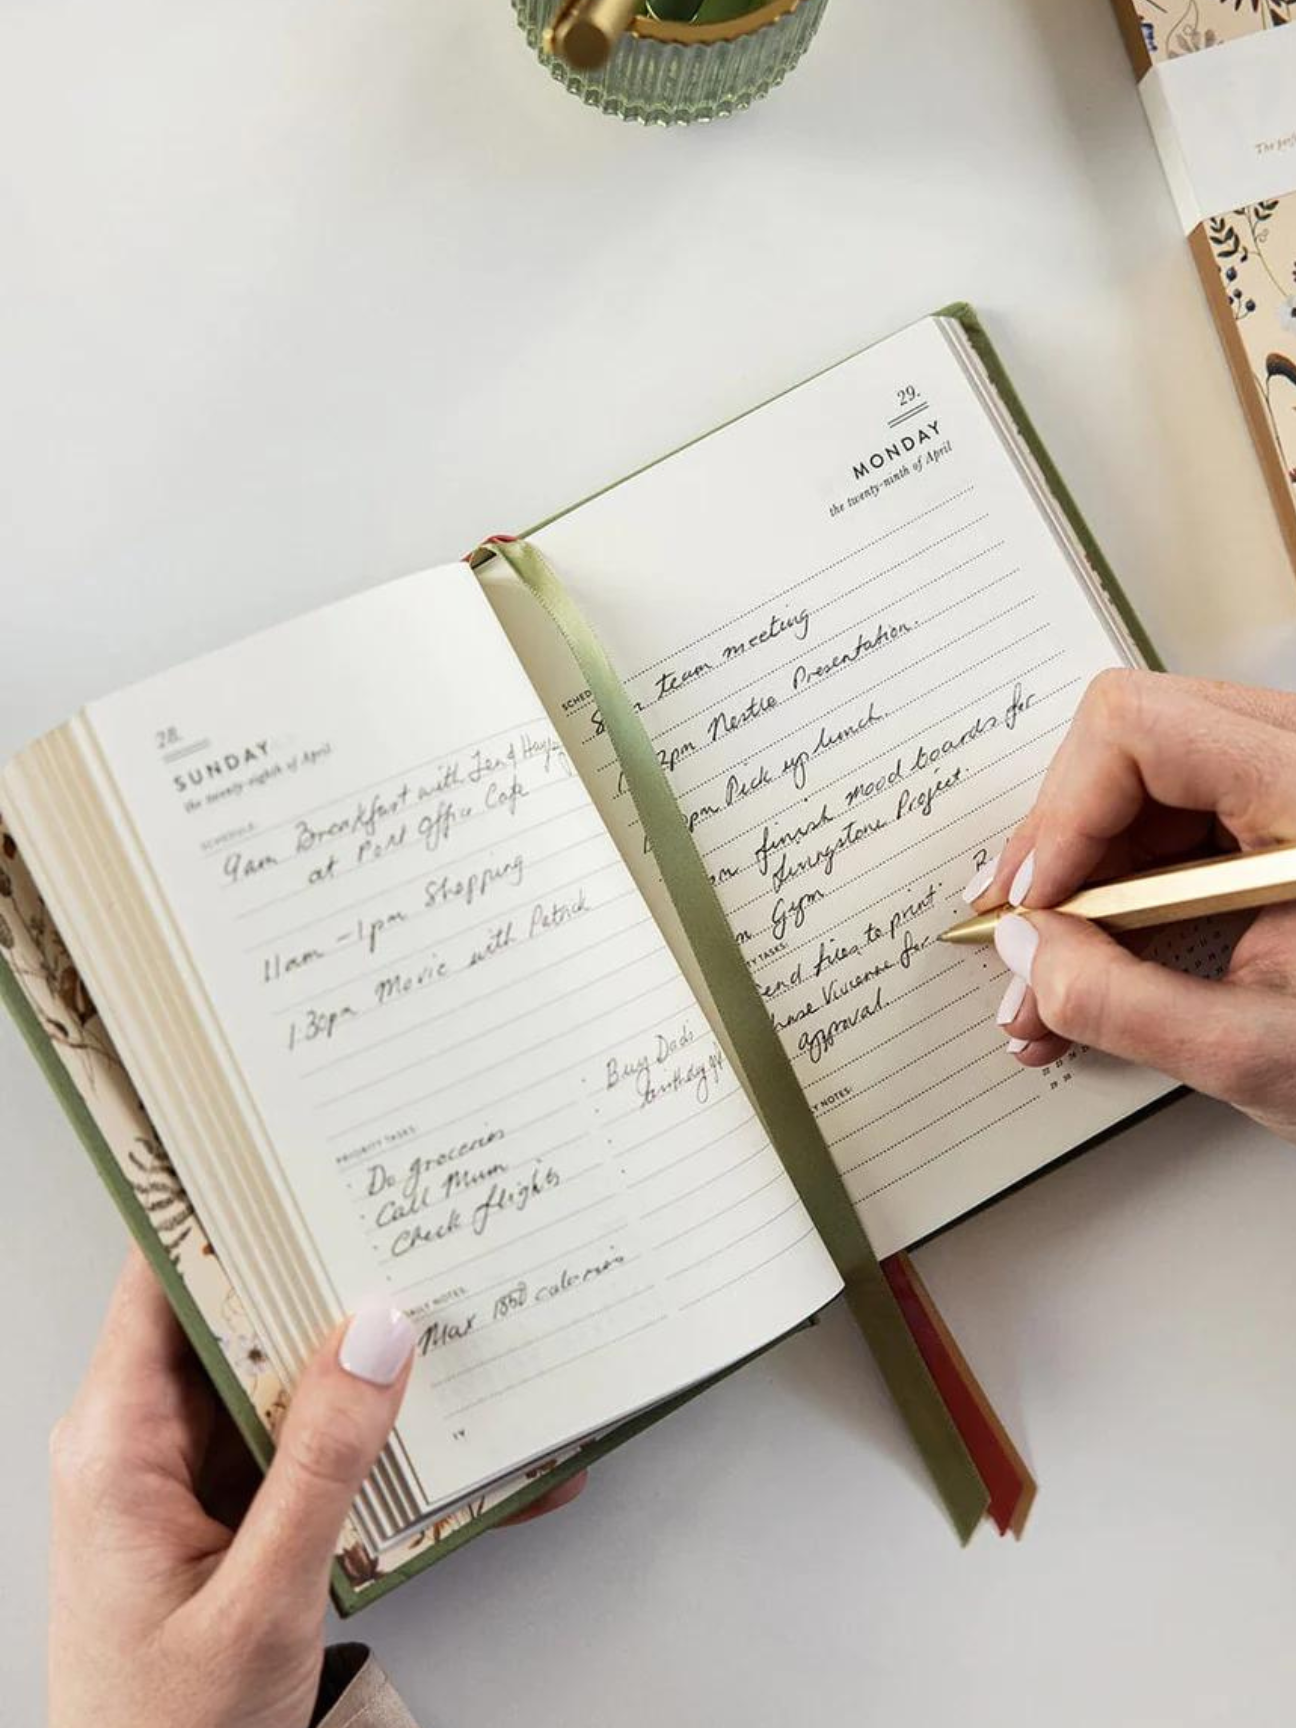 28.
SUNDAY
the twenty-eighth of April
SCHEDULE:
9am Breakfast with Jen &
at Port Office Cafe
11am - 1pm Shopping
1.30pm Movie with Patrick
PRIORITY TASKS:
Do groceries
Call Mum
Check flights
Buy Dad's
birthday
DAILY NOTES:
Max 1850 calories
29.
MONDAY
the twenty-ninth of April
SCHED
team meeting
2pm Presentation.
pm Pick up lunch.
finish mood boards for
Livingstone Project.
Gym
Y TASKS:
end files to print
Vivienne for
approval.
R.
Y NOTES:
29 30